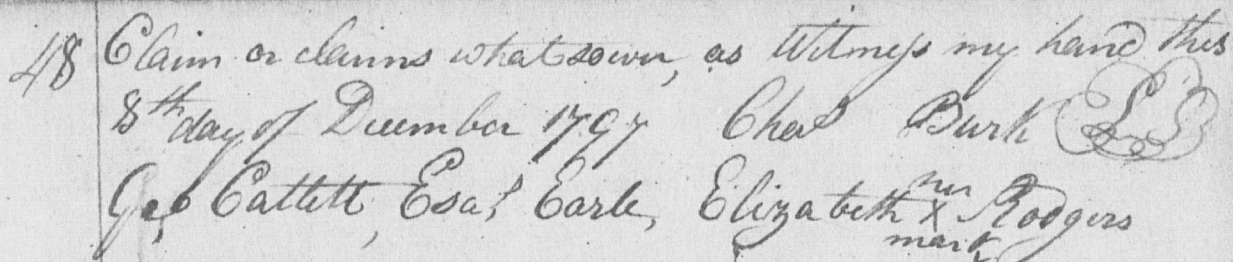 48 Claim or claims whatsoever, as Witness my hand this
8th day of December 1797 Chas Burk L.S
Geo Catlett, Esas Earle, Elizabeth her x mark Rodgers